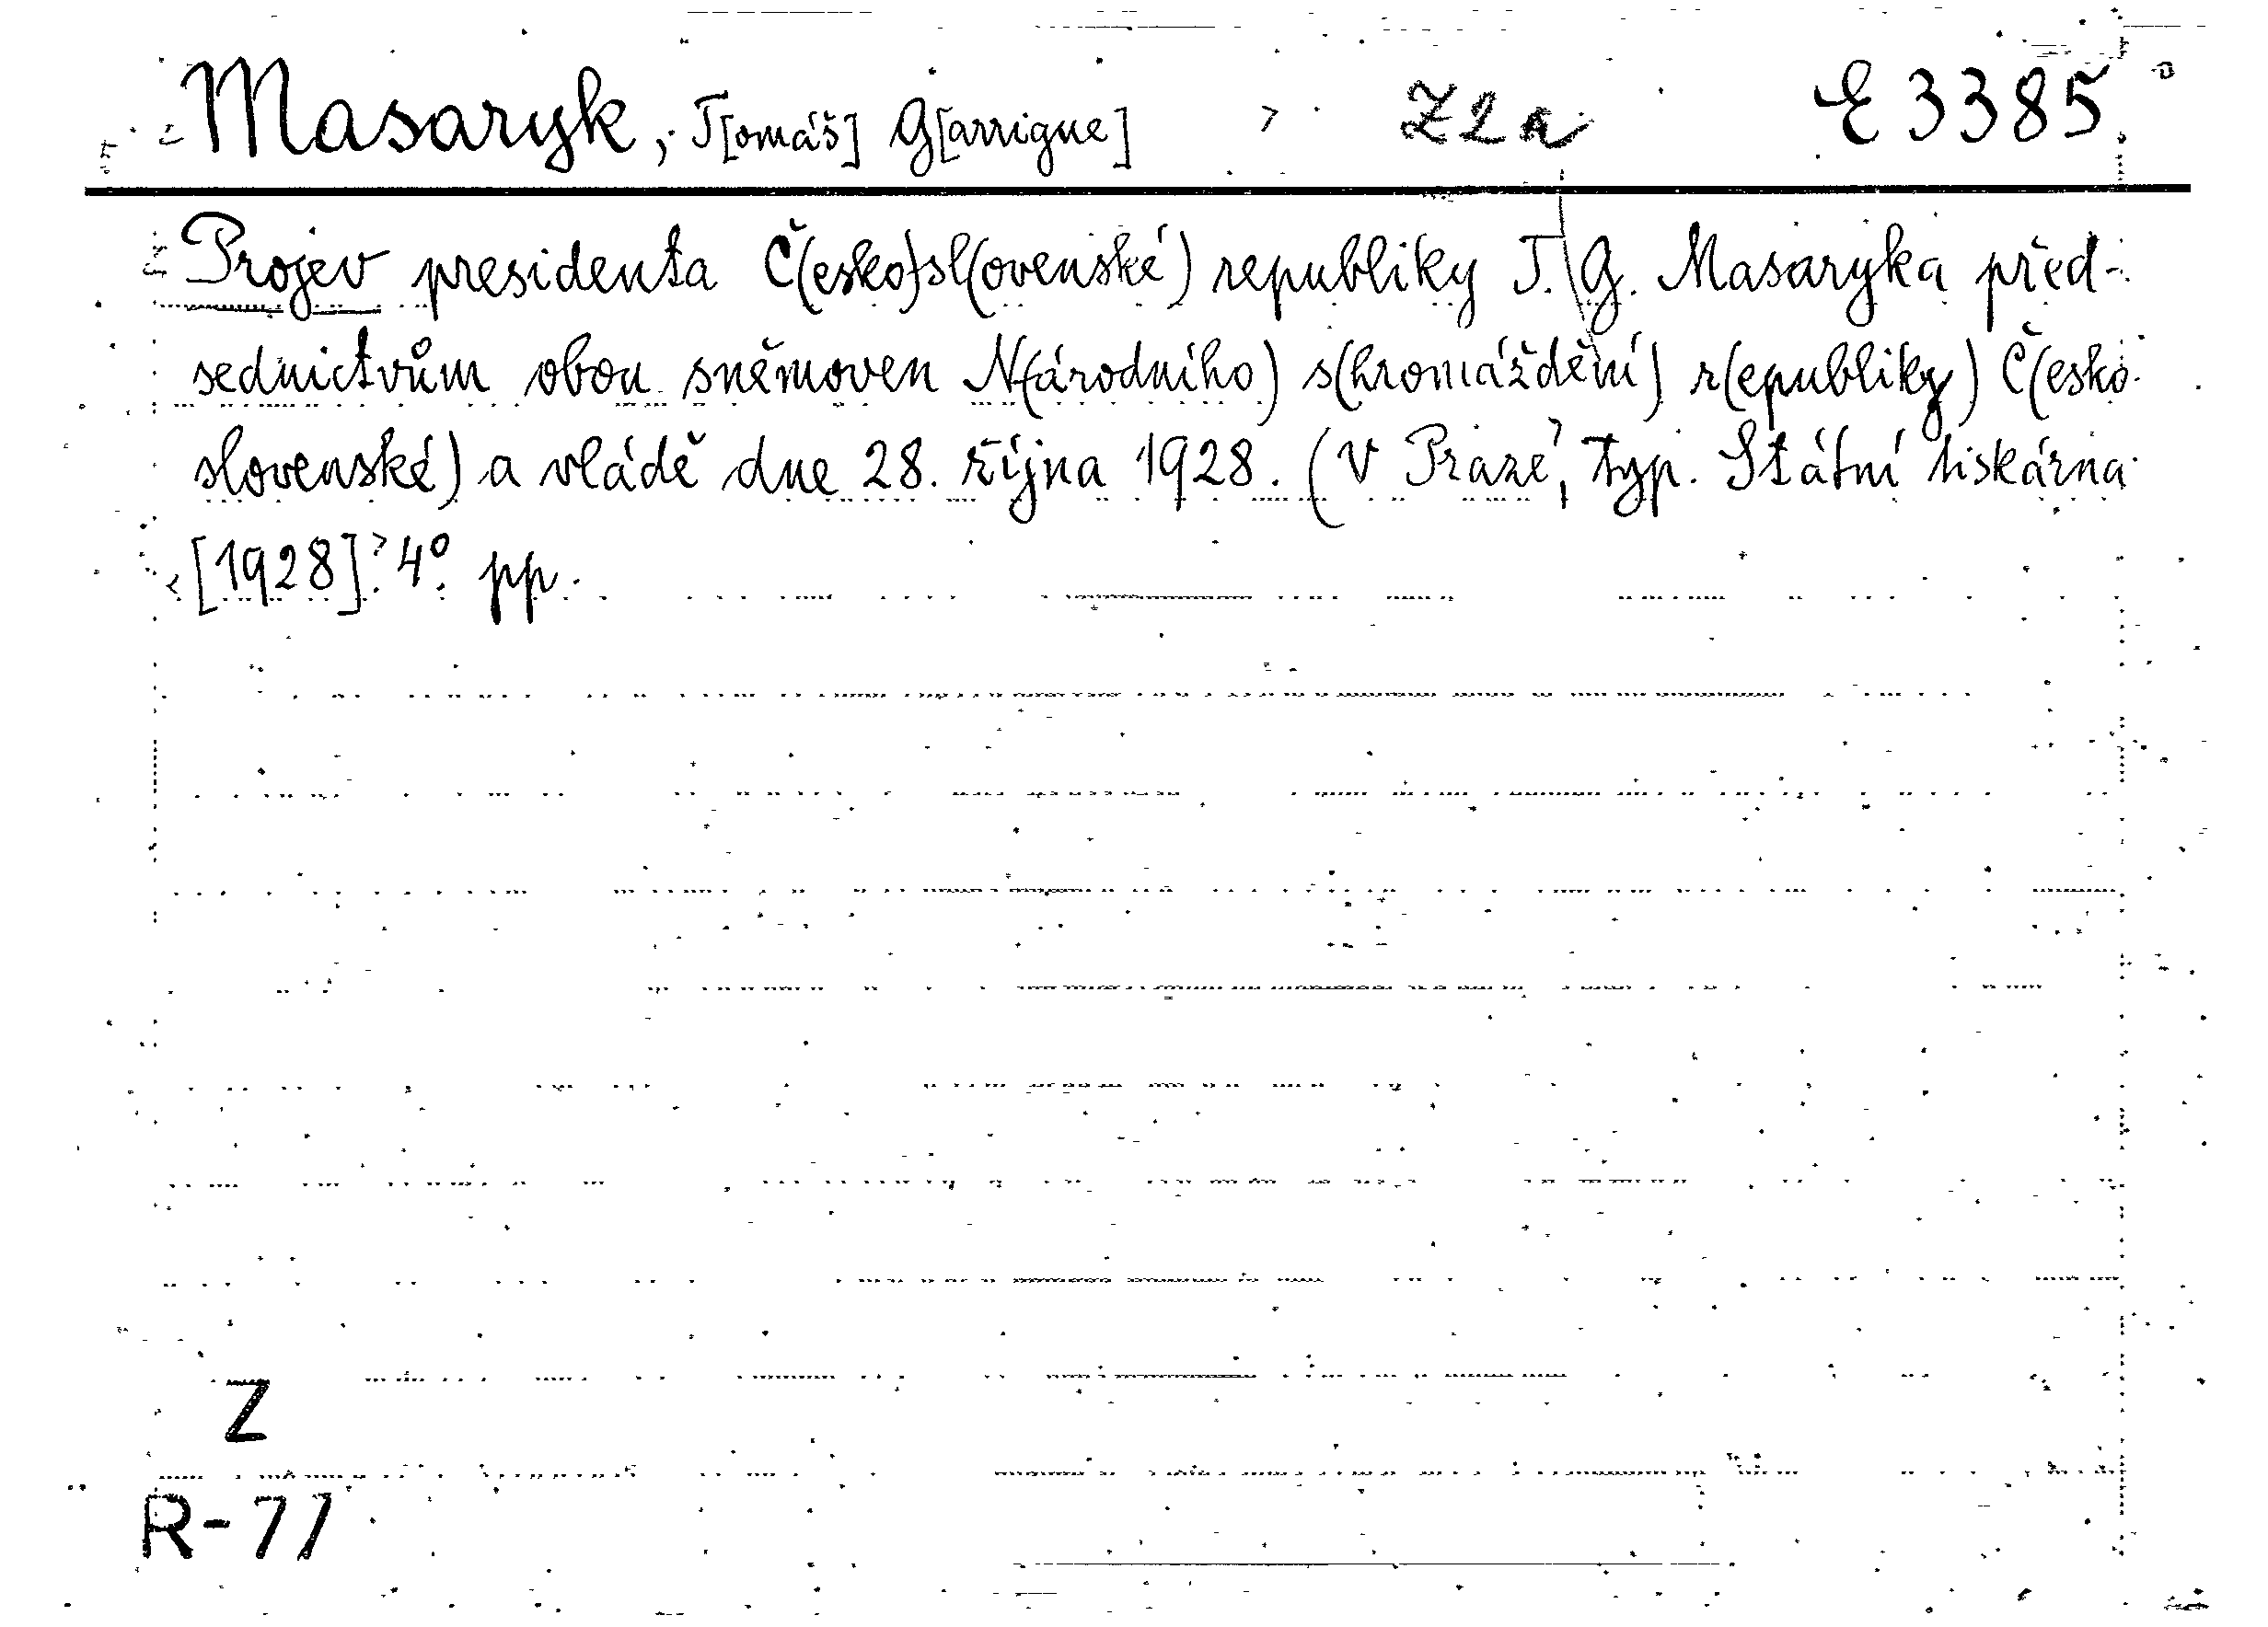 Masaryk, T[omáš] G[arrigue] Z2a E 3385
Projev presidenta Č(esko)sl(ovenské) republiky T. G. Masaryka před-
sednictvům obou sněmoven N(árodního) s(hromáždění) r(epubliky) Č(esko-
slovenské) a vládě dne 28. října 1928. (V Praze, typ. Státní tiskárna
[1928]. 4° pp.
Z
R-77